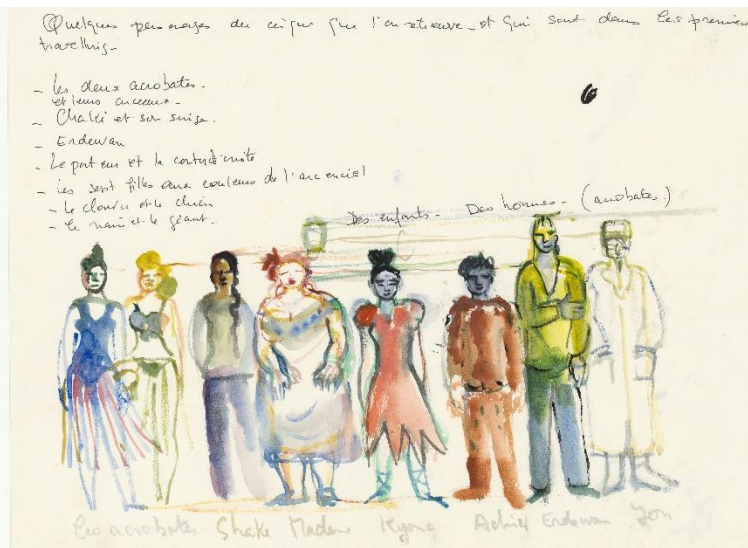 Quelques personages du cirque que l'on retrouve - et qui sont dans les premiers
travelling -
- Les deux acrobates.
et leurs anceaux -
- Chaké et son singe.
- Erdewan
- Le porteur et la contorsioniste
- Les sept filles aux couleurs de l'arc en ciel
- le clown et le chien
- le nain et le géant.
Des enfants - Des hommes - (acrobates.)
6
les acrobates Shake Madame Kyong Achief Erdewan Jon